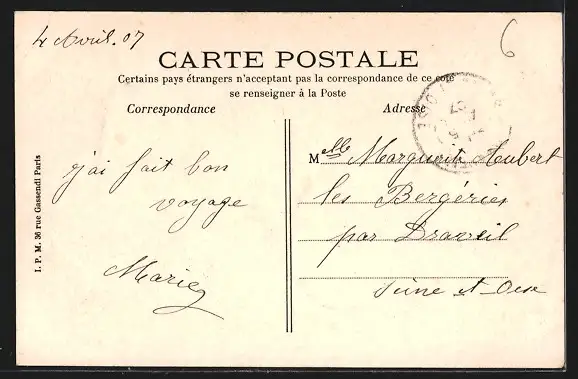 4 Avril. 07
6
CARTE POSTALE
Certains pays étrangers n'acceptent pas la correspondance de ce coté
se renseigner à la Poste
Correspondance
Adresse
j'ai fait bon
voyage
Marie
Melle Marguerite Aubert
les Bergéries
par Draveil
Seine et Oise
I. P. M. 36 rue Gassendi Paris